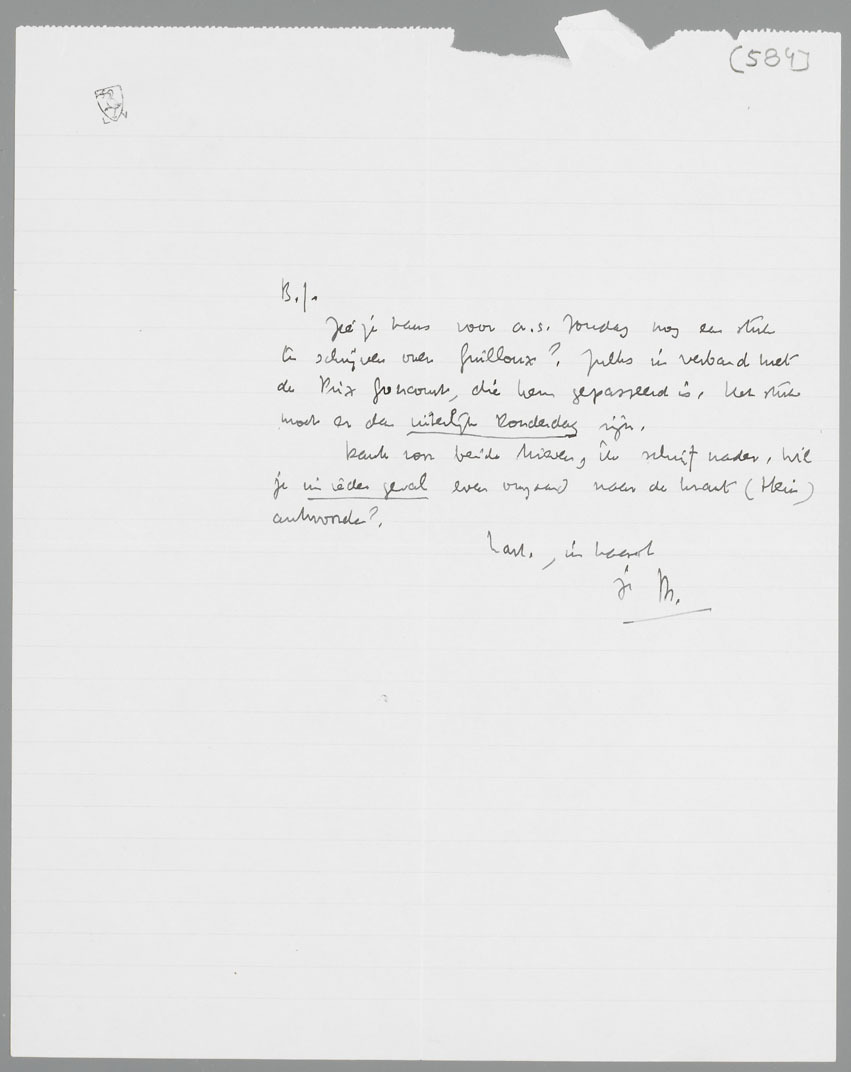 (584)
B.J.
Zie je kans voor a.s. Zondag nog een stuk
te schrijven over Guilloux? Zulks in verband met
de Prix Goncourt, die hem gepasseerd is. Het stuk
moet er dan uiterlijk Donderdag zijn.
Dank voor beide brieven, ik schrijf nader. Wil
je in ieder geval even omgaand naar de krant (Hein)
antwoorden?
Hart., in haast
je M.